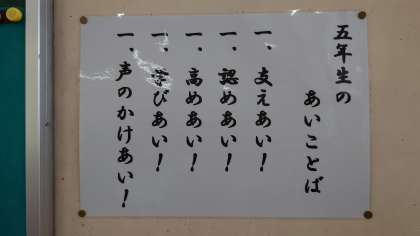 五年生の
あいことば
一、支えあい！
一、認めあい！
一、高めあい！
一、学びあい！
一、声のかけあい！